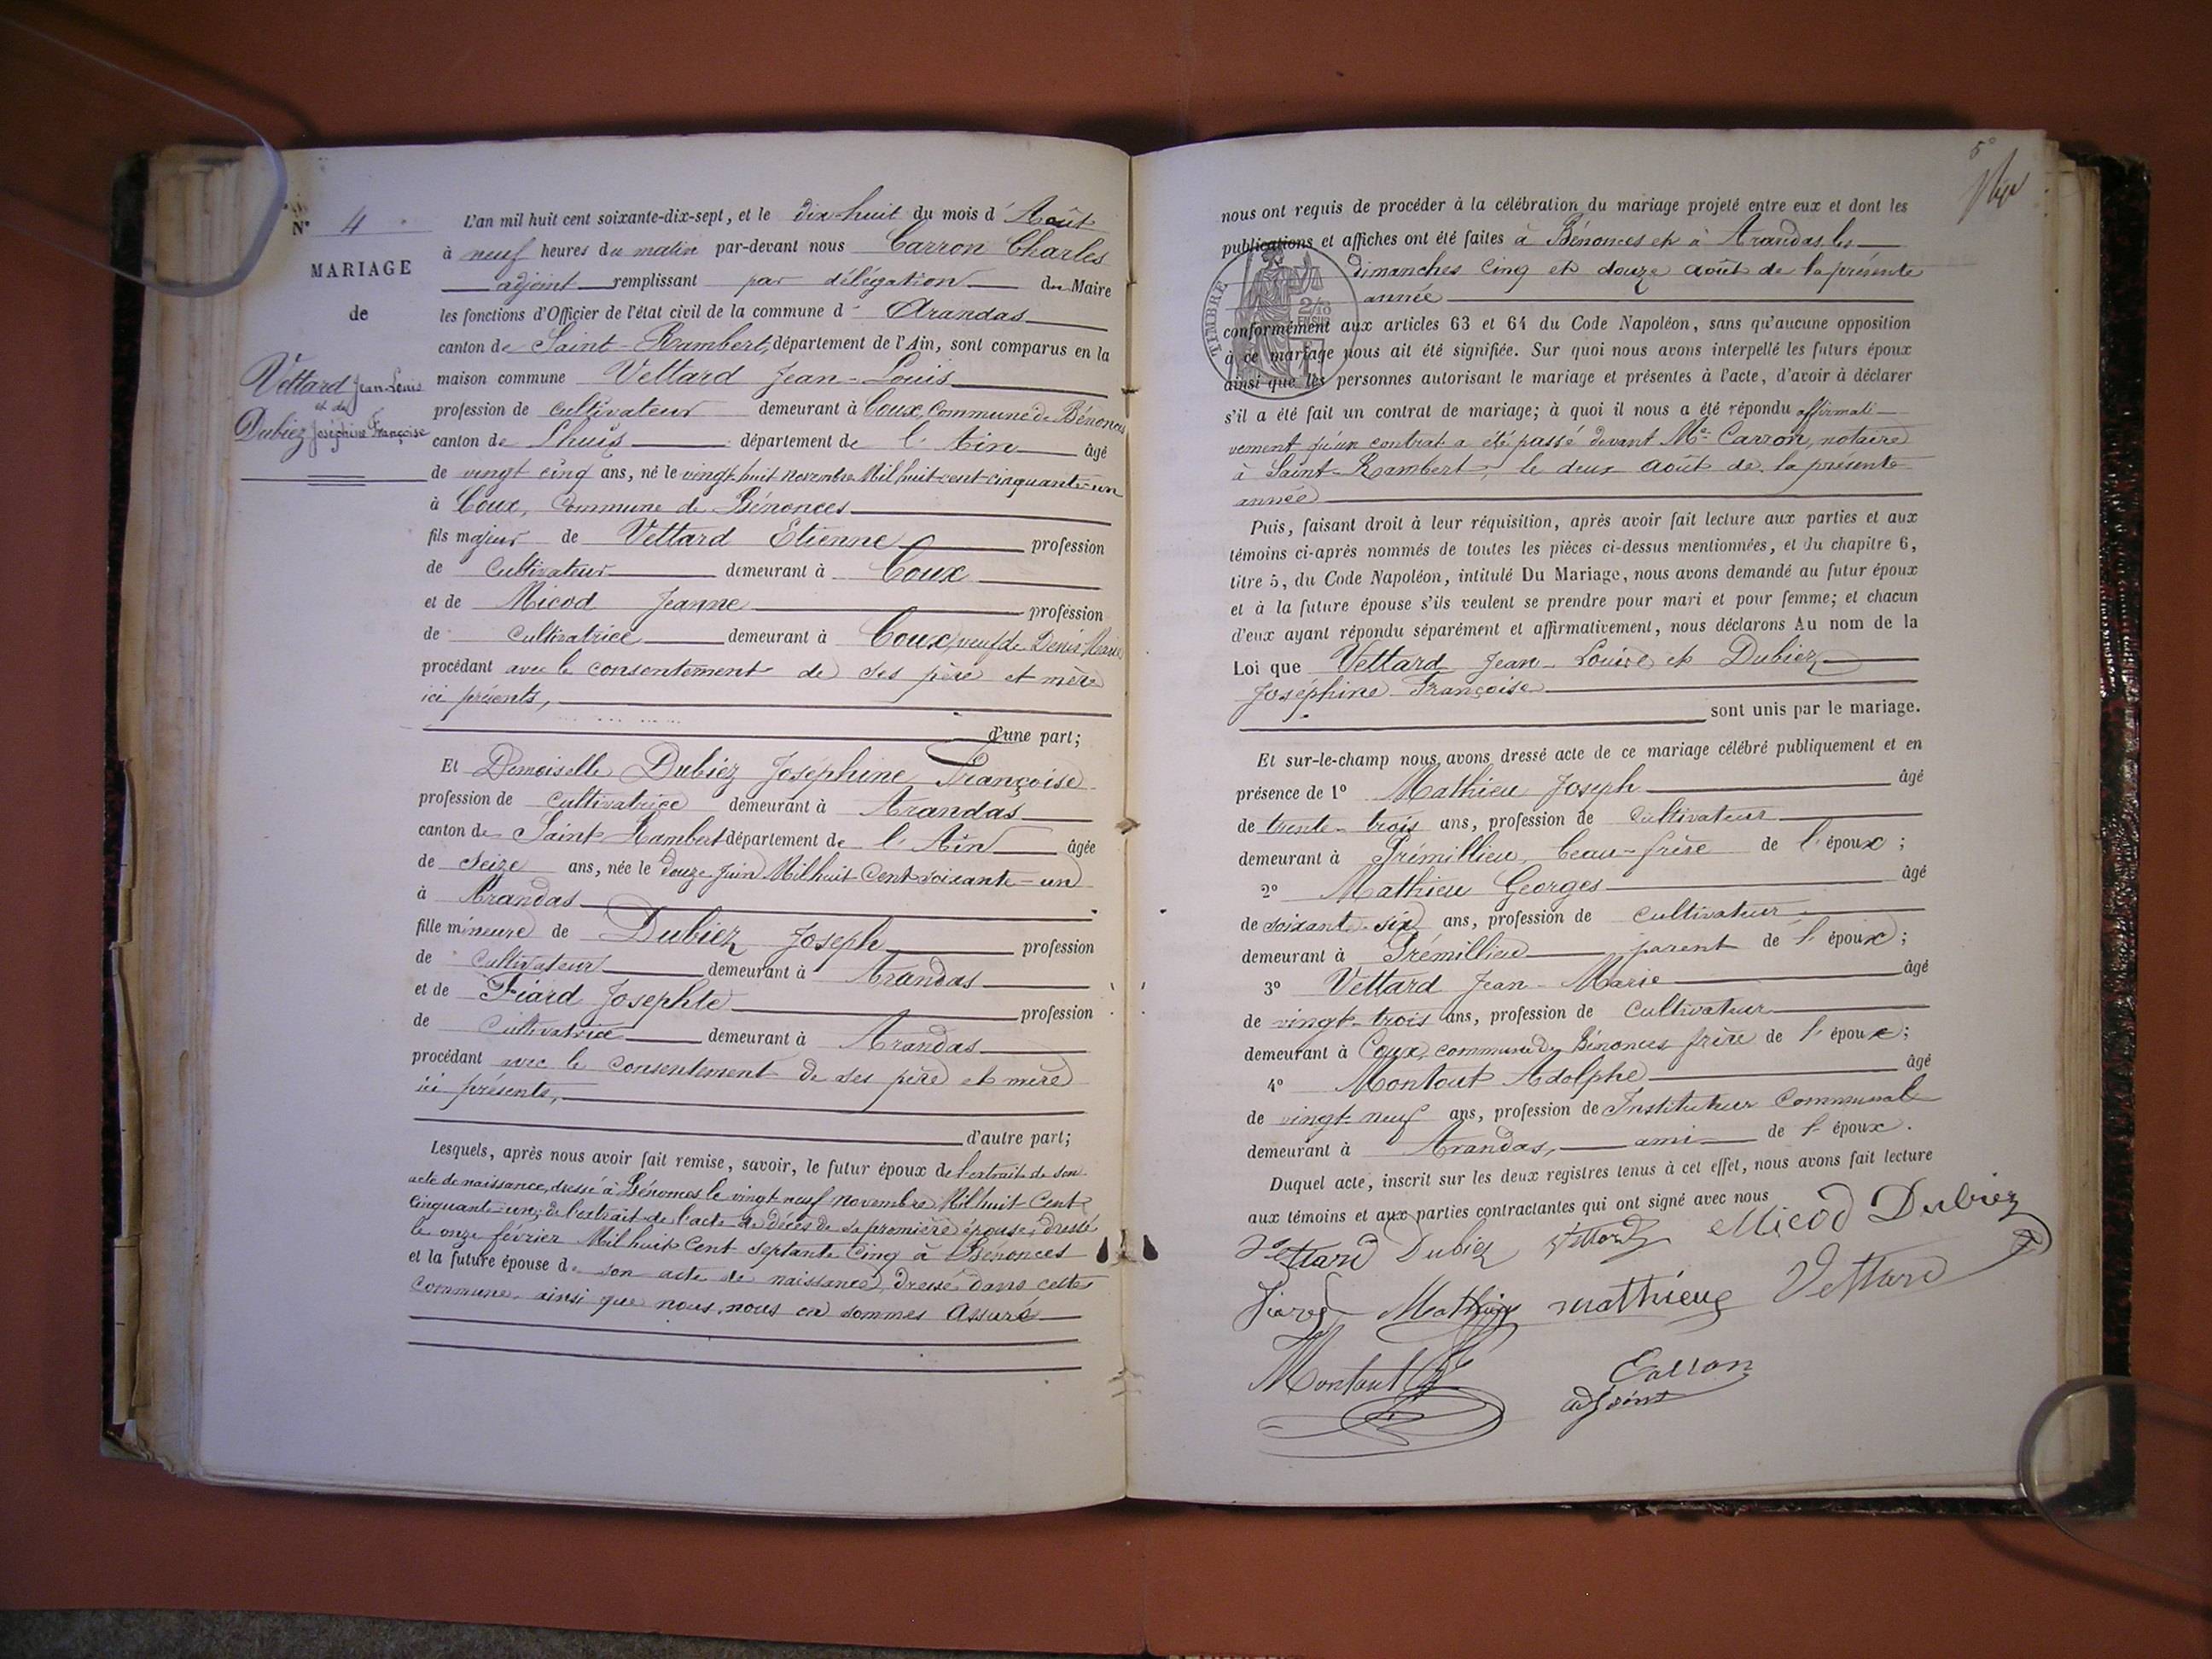 N° 4
MARIAGE
de
Vettard Jean-Louis
et de
Dubiez Joséphine Françoise
L'an mil huit cent soixante-dix-sept, et le dix-huit du mois d'Août
à neuf heures du matin par-devant nous Carron Charles
adjoint remplissant par délégation du Maire
les fonctions d'Officier de l'état civil de la commune d' Arandas
canton de Saint-Rambert, département de l'Ain, sont comparus en la
maison commune Vettard Jean-Louis
profession de cultivateur demeurant à Coux, Commune de Bénonces
canton de Lhuis département de l'Ain âgé
de vingt cinq ans, né le vingt-huit novembre Mil huit-cent-cinquante-un
à Coux, Commune de Bénonces
fils majeur de Vettard Etienne profession
de Cultivateur demeurant à Coux
et de Micod Jeanne profession
de Cultivatrice demeurant à Coux, veuf de Denis
procédant avec le consentement de ses père et mère
ici présents,
d'une part;
Et Demoiselle Dubiez Joséphine Françoise
profession de Cultivatrice demeurant à Arandas
canton de Saint-Rambert département de l'Ain âgée
de Seize ans, née le douze Juin Mil huit Cent soixante-un
à Arandas
fille mineure de Dubiez Joseph profession
de Cultivateur demeurant à Arandas
et de Fiard Josephte profession
de Cultivatrice demeurant à Arandas
procédant avec le consentement de ses père et mère
ici présents,
d'autre part;
Lesquels, après nous avoir fait remise, savoir, le futur époux de l'extrait de son
acte de naissance, dressé à Bénonces le vingt neuf novembre Mil huit-Cent
Cinquante-un; de l'extrait de l'acte de décès de sa première épouse, dressé
le onze février Mil huit Cent septante Cinq à Bénonces
et la future épouse de son acte de naissance, dressé dans cette
Commune ainsi que nous nous en sommes assuré
5e
nous ont requis de procéder à la célébration du mariage projeté entre eux et dont les
publications et affiches ont été faites à Bénonces et à Arandas les
dimanches cinq et douze août de la présente
année
TIMBRE
2/10
EN SUS
conformément aux articles 63 et 64 du Code Napoléon, sans qu'aucune opposition
à ce mariage nous ait été signifiée. Sur quoi nous avons interpellé les futurs époux
ainsi que les personnes autorisant le mariage et présentes à l'acte, d'avoir à déclarer
s'il a été fait un contrat de mariage; à quoi il nous a été répondu affirmati-
vement qu'un contrat a été passé devant Me Carron, notaire
à Saint-Rambert, le deux août de la présente
année
Puis, faisant droit à leur réquisition, après avoir fait lecture aux parties et aux
témoins ci-après nommés de toutes les pièces ci-dessus mentionnées, et du chapitre 6,
titre 5, du Code Napoléon, intitulé Du Mariage, nous avons demandé au futur époux
et à la future épouse s'ils veulent se prendre pour mari et pour femme; et chacun
d'eux ayant répondu séparément et affirmativement, nous déclarons Au nom de la
Loi que Vettard Jean-Louis et Dubiez
Joséphine Françoise
sont unis par le mariage.
Et sur-le-champ nous avons dressé acte de ce mariage célébré publiquement et en
présence de 1° Mathieu Joseph âgé
de trente-trois ans, profession de cultivateur
demeurant à Prémillieu, beau-frère de l'époux;
2° Mathieu Georges âgé
de soixante-six ans, profession de Cultivateur
demeurant à Prémillieu parent de l'époux;
3° Vettard Jean-Marie âgé
de vingt-trois ans, profession de Cultivateur
demeurant à Coux, commune de Bénonces frère de l'époux;
4° Montout Adolphe âgé
de vingt-neuf ans, profession de Instituteur Communal
demeurant à Arandas, ami de l'époux.
Duquel acte, inscrit sur les deux registres tenus à cet effet, nous avons fait lecture
aux témoins et aux parties contractantes qui ont signé avec nous
Vettard Dubiez Vettard Micod Dubiez
Fiard Mathieu mathieu Vettard
Montout
Carron
adjoint